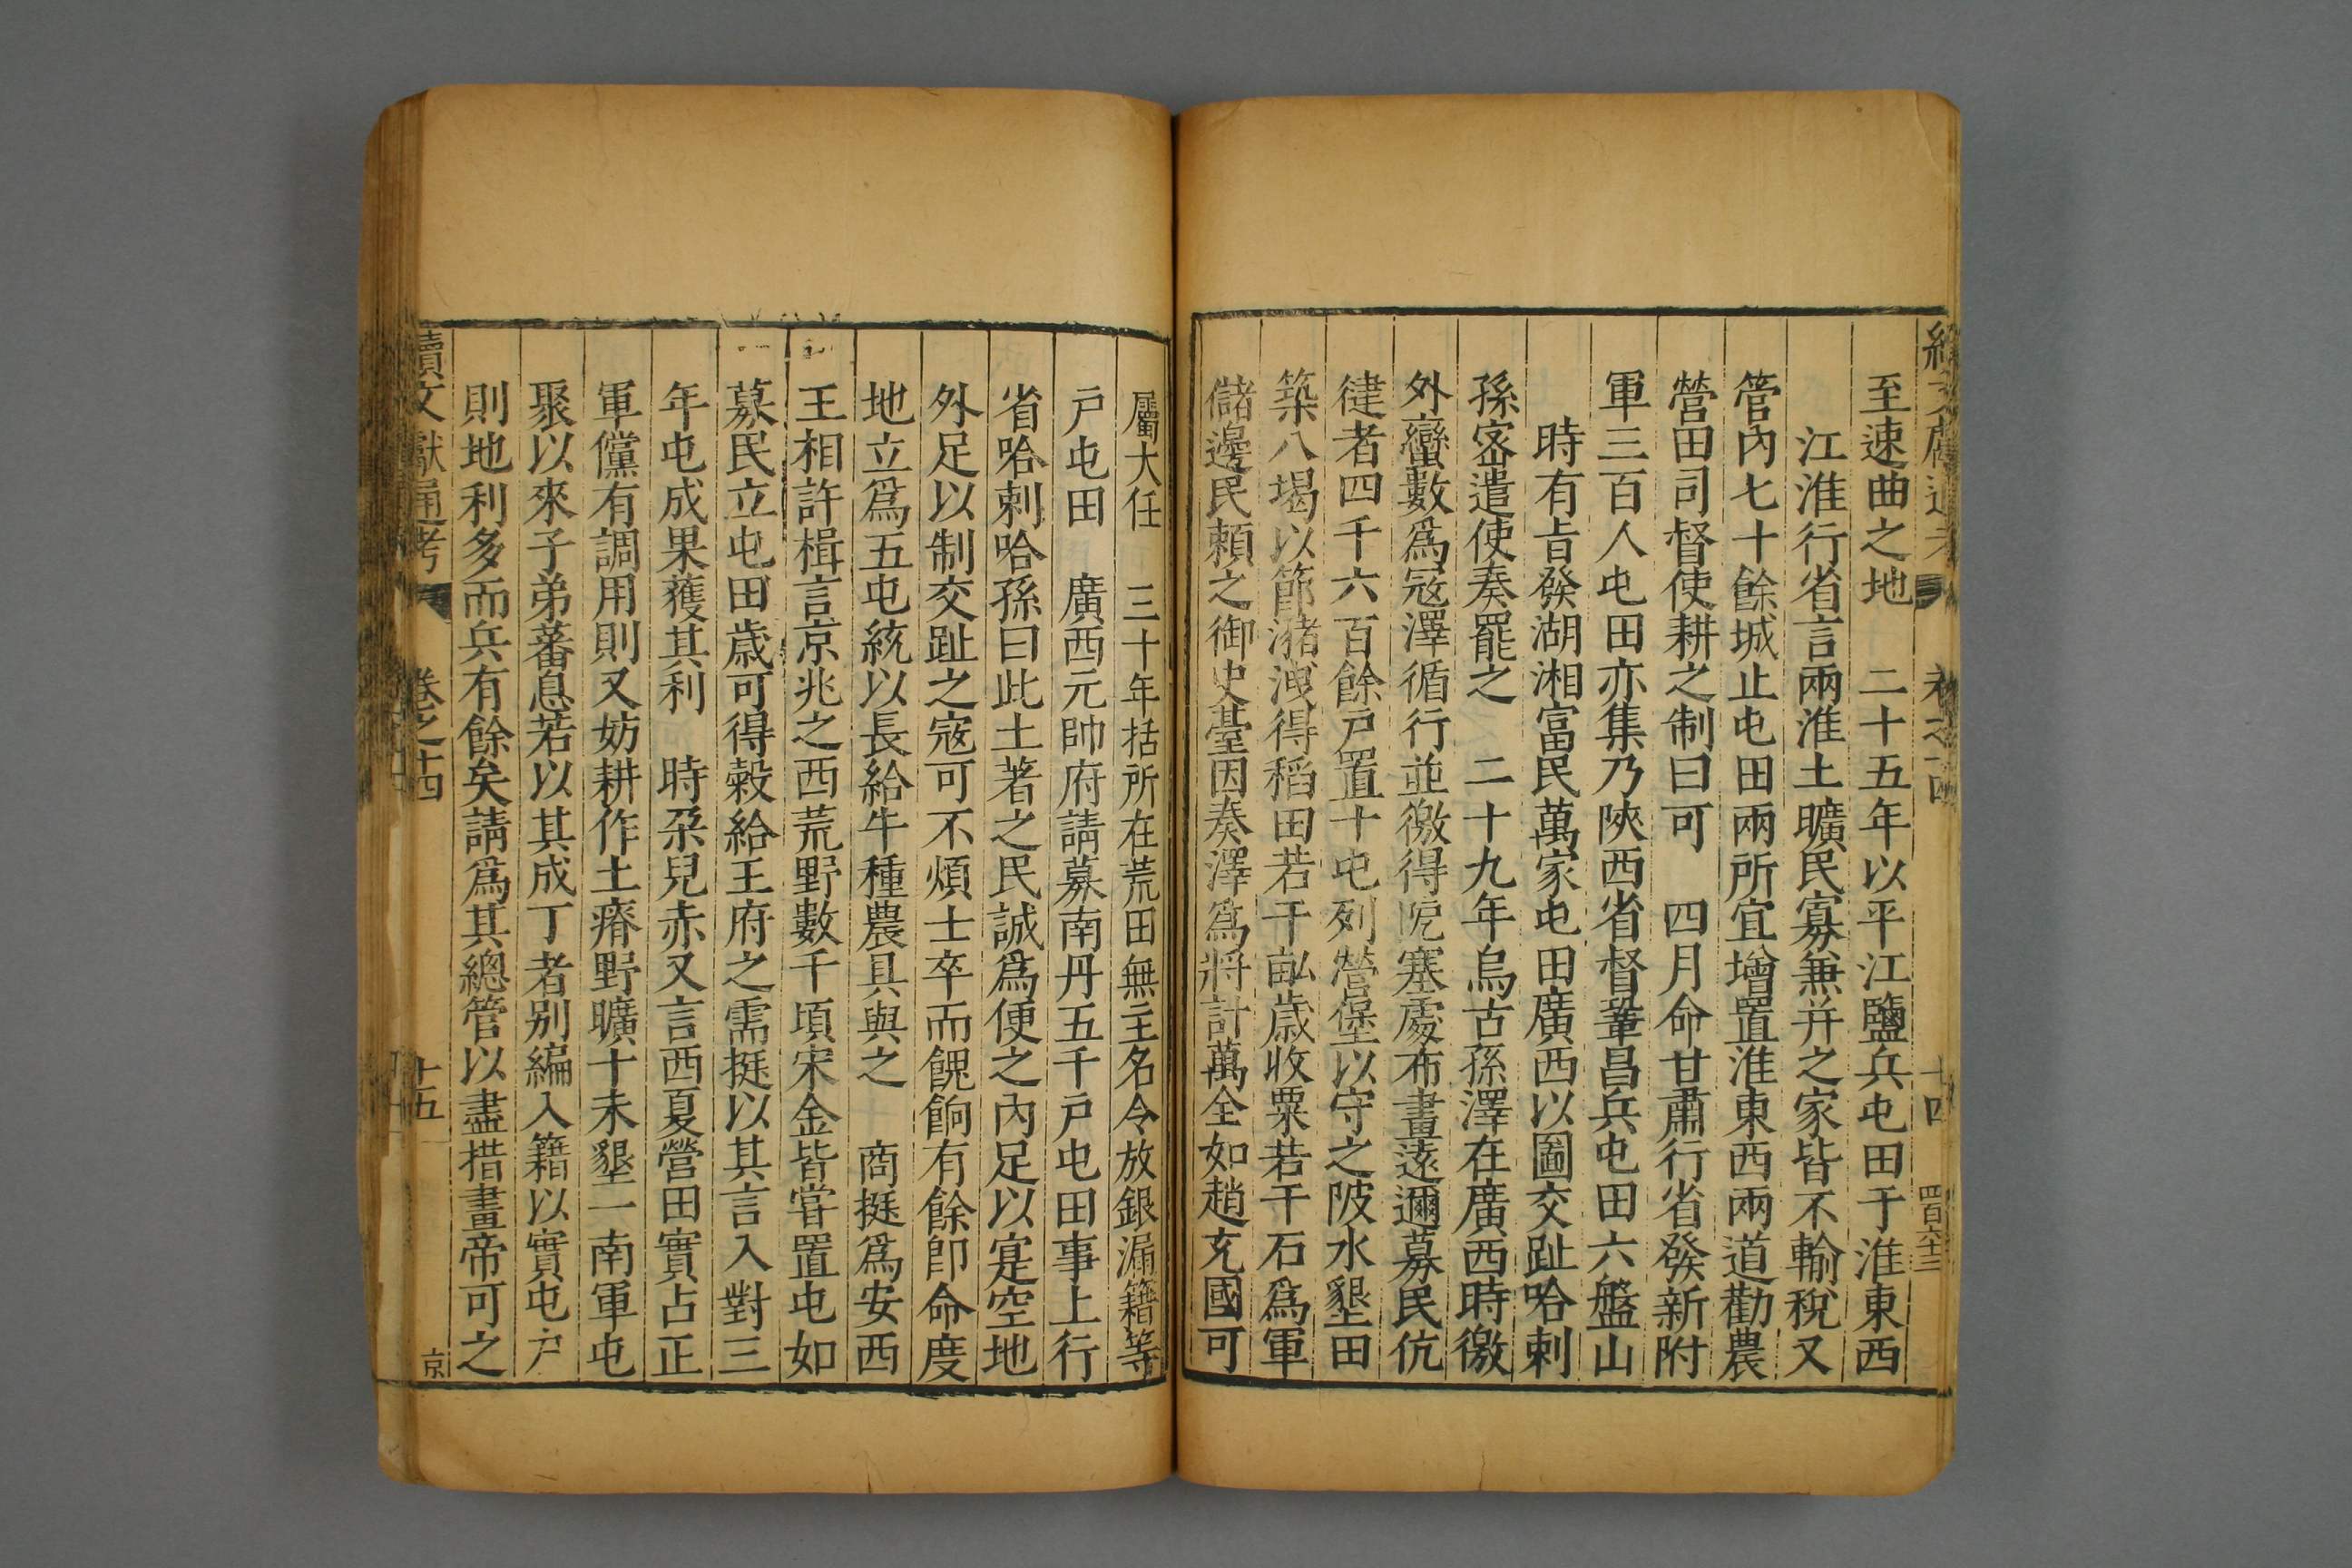 至速曲之地　二十五年以平江鹽兵屯田于淮東西
江淮行省言兩淮土曠民寡兼并之家皆不輸稅又
管內七十餘城止屯田兩所宜增置淮東西兩道勸農
營田司督使耕之制曰可　四月命甘肅行省發新附
軍三百人屯田亦集乃陝西省督鞏昌兵屯田六盤山
時有旨發湖湘富民萬家屯田廣西以圖交趾哈剌
孫密遣使奏罷之　二十九年烏古孫澤在廣西時徼
外蠻數爲寇澤循行並徼得阨塞處布畫遠邇募民伉
徤者四千六百餘戶置十屯列營堡以守之陂水墾田
築八堨以節瀦洩得稻田若干畝歲收粟若干石爲軍
儲邊民賴之御史臺因奏澤爲將計萬全如趙充國可
屬大任　三十年括所在荒田無主名令放銀漏籍等
戶屯田　廣西元帥府請募南丹五千戶屯田事上行
省哈剌哈孫曰此土著之民誠爲便之內足以寔空地
外足以制交趾之寇可不煩士卒而餽餉有餘卽命度
地立爲五屯統以長給牛種農具與之　商挺爲安西
王相許楫言京兆之西荒野數千頃宋金皆嘗置屯如
募民立屯田歲可得榖給王府之需挺以其言入對三
年屯成果獲其利　時朶兒赤又言西夏營田實占正
軍儻有調用則又妨耕作土瘠野曠十未墾一南軍屯
聚以來子弟蕃息若以其成丁者别編入籍以實屯戶
則地利多而兵有餘矣請爲其總管以盡措畫帝可之
續文獻通考　卷之十四　十五　京